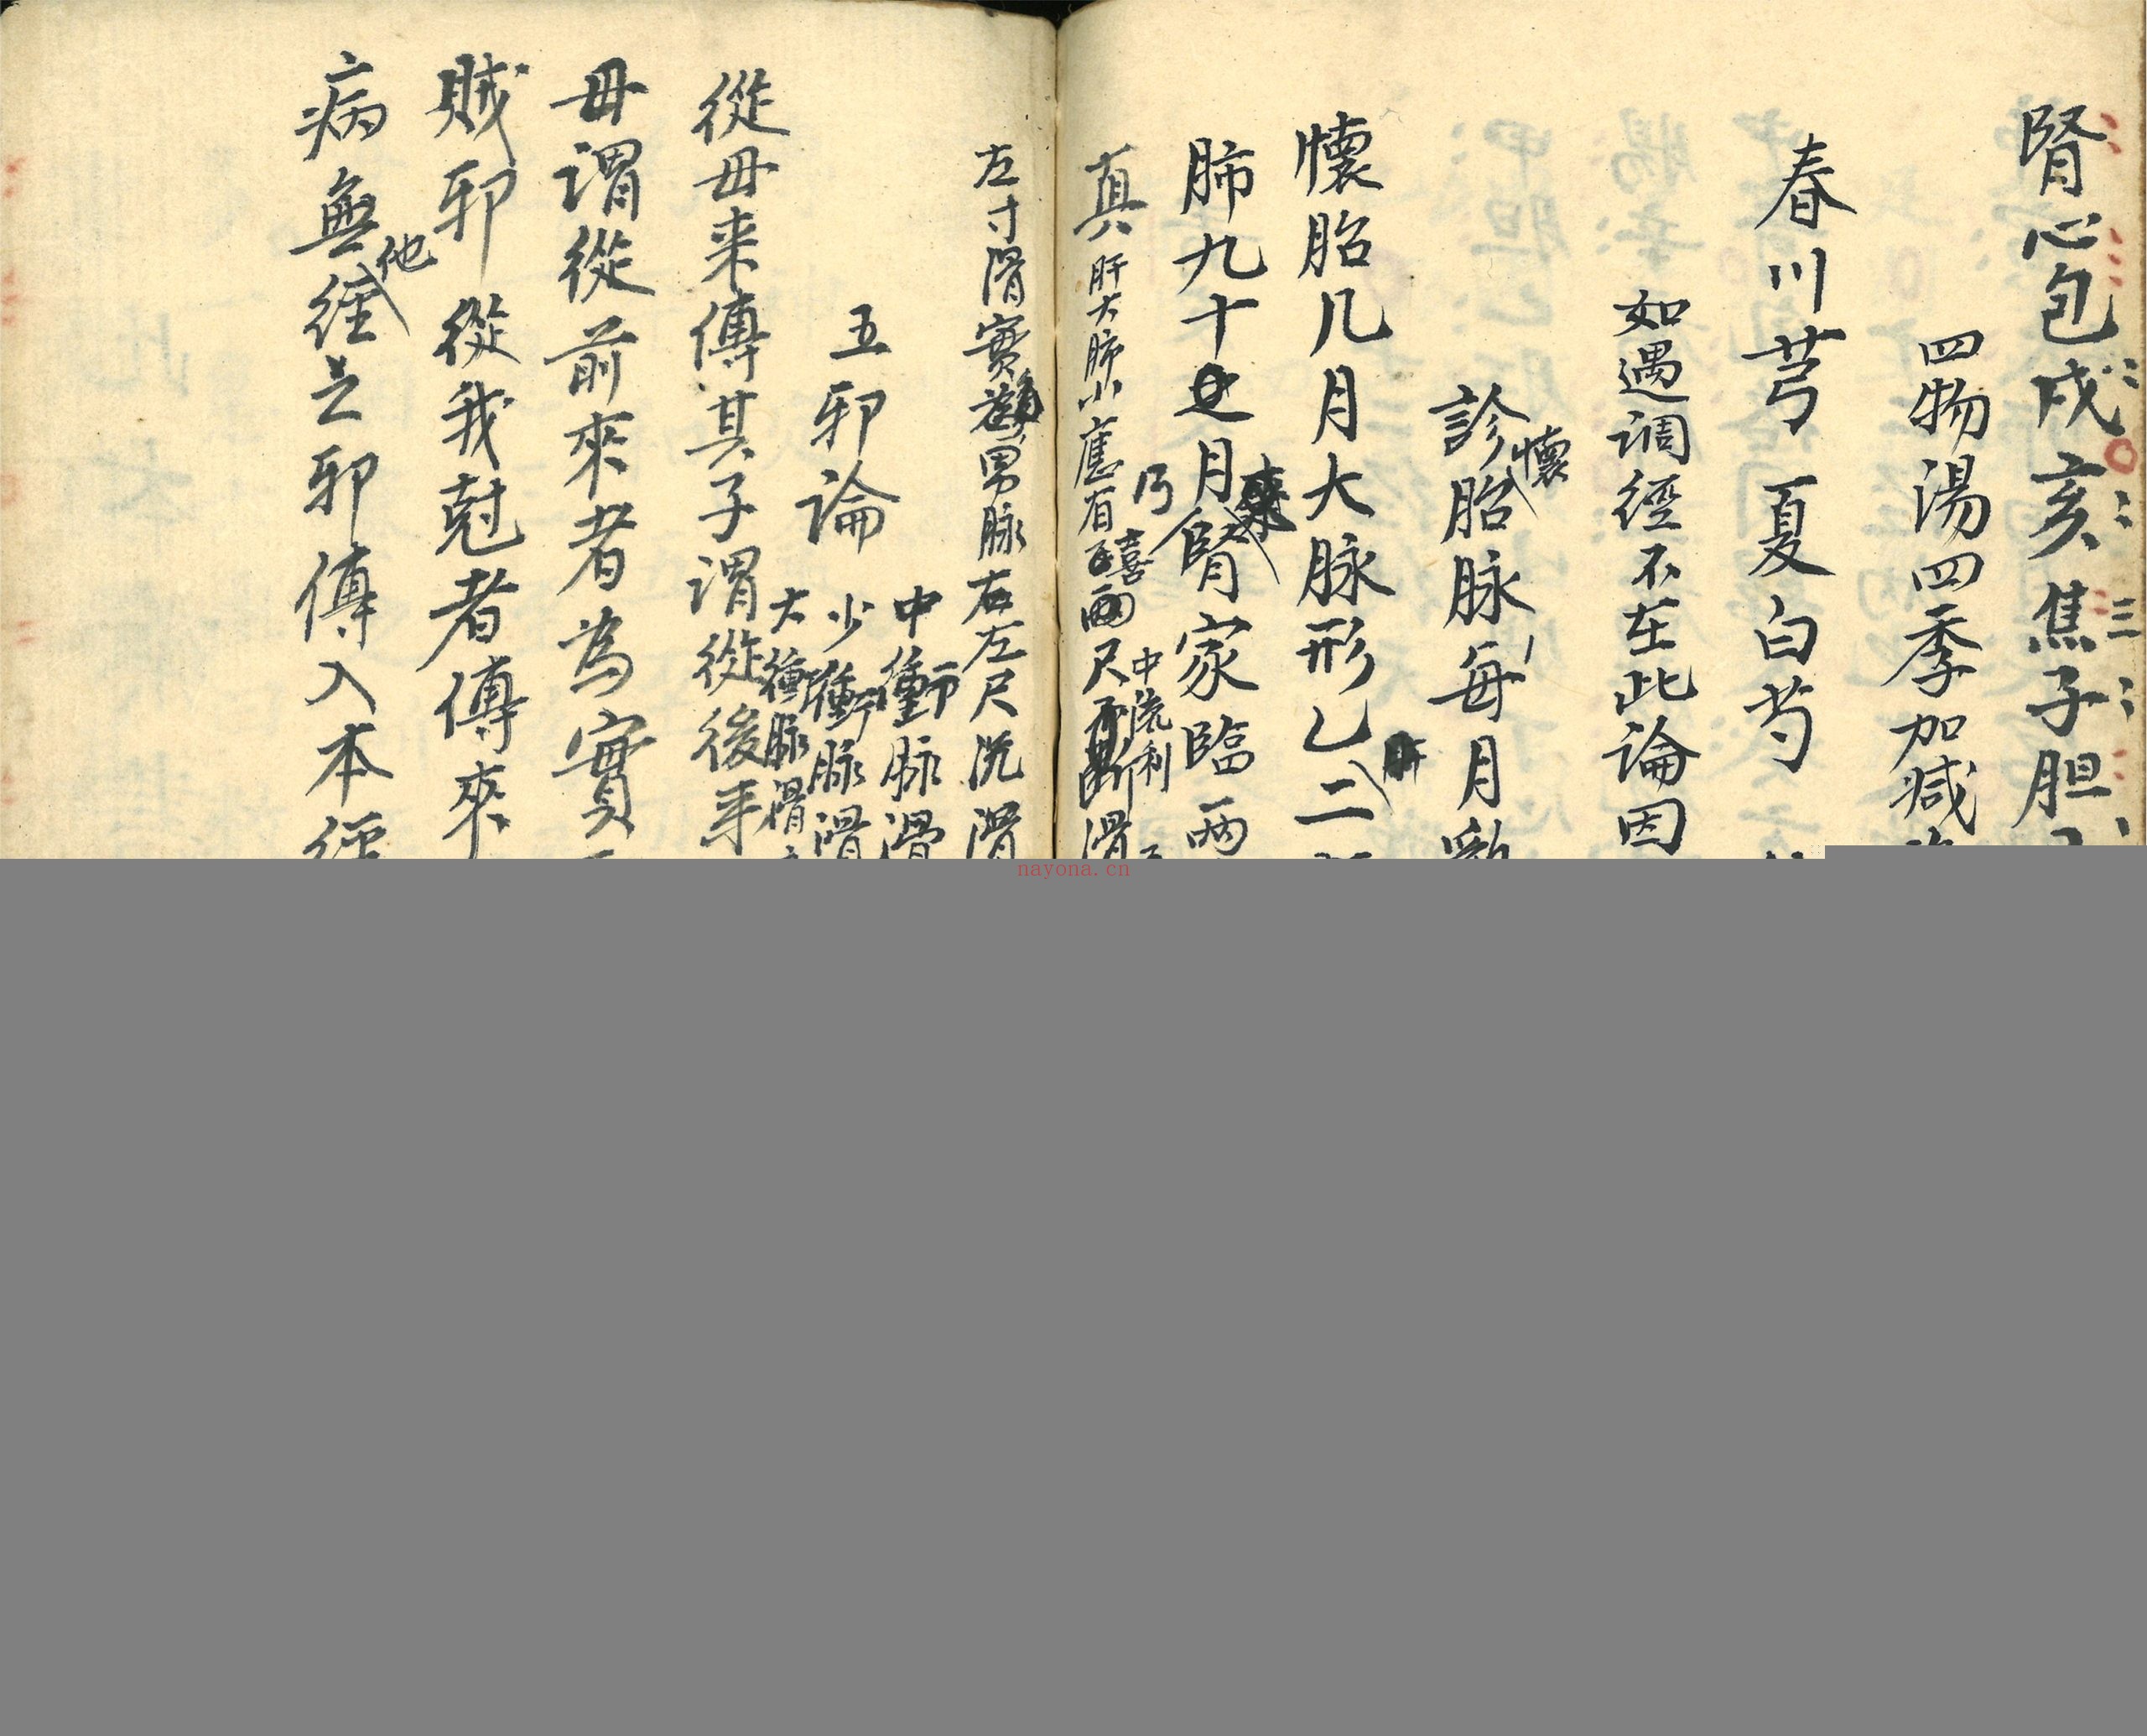 腎心包戌亥三焦子胆
四物湯四季加減
春川芎夏白芍
如遇调經不在此論因
診懷胎脉每月
懷胎几月大脉形乙二
肺九十月腎家臨兩
真肝大肺小應有
乃
喜兩尺
中流利
滑
左寸滑實男脉右左尺洗滑
五邪論
中衝脉滑
少衝脉滑
大衝脉滑
從母来傳其子謂從後来
母謂從前來者為實
賊邪從我尅者傳來
病無他經之邪傳入本經
nayona.cn